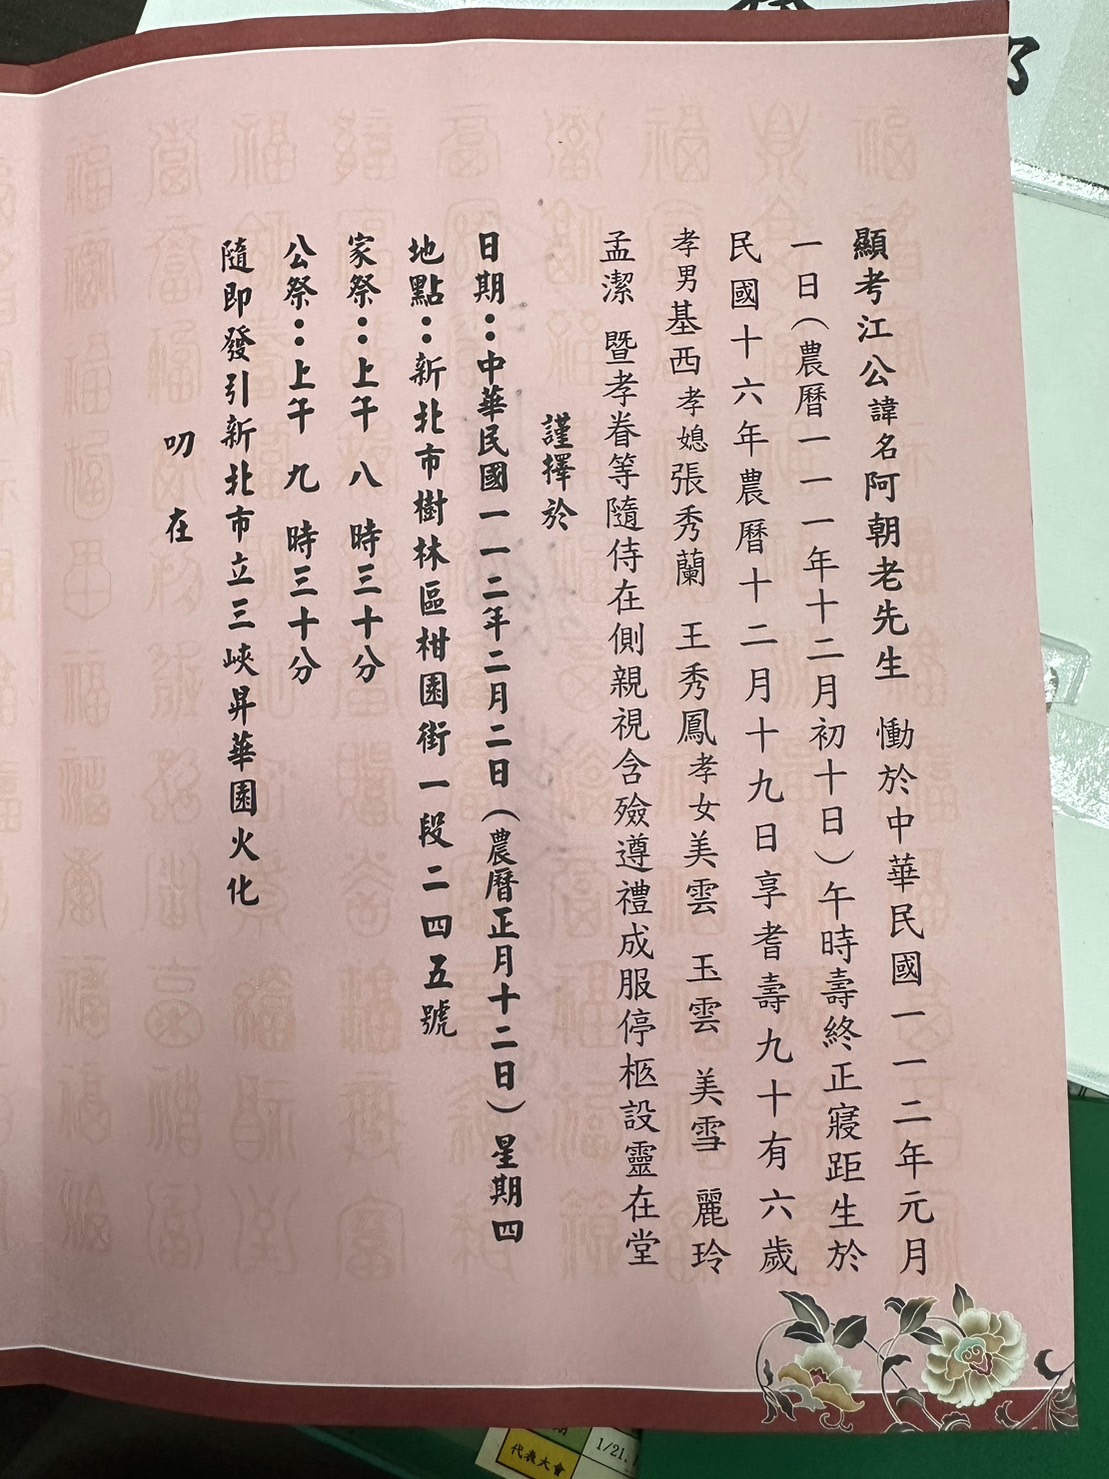 顯考江公諱名阿朝老先生 慟於中華民國一一二年元月
一日(農曆一一一年十二月初十日)午時壽終正寢距生於
民國十六年農曆十二月十九日享耆壽九十有六歲
孝男基西孝媳張秀蘭 王秀鳳孝女美雲 玉雲 美雪 麗玲
孟潔 暨孝眷等隨侍在側親視含殮遵禮成服停柩設靈在堂
謹擇於
日期：中華民國一一二年二月二日(農曆正月十二日)星期四
地點：新北市樹林區柑園街一段二四五號
家祭：上午 八 時三十分
公祭：上午 九 時三十分
隨即發引新北市立三峽昇華園火化
叨 在
代表大會
1/21.